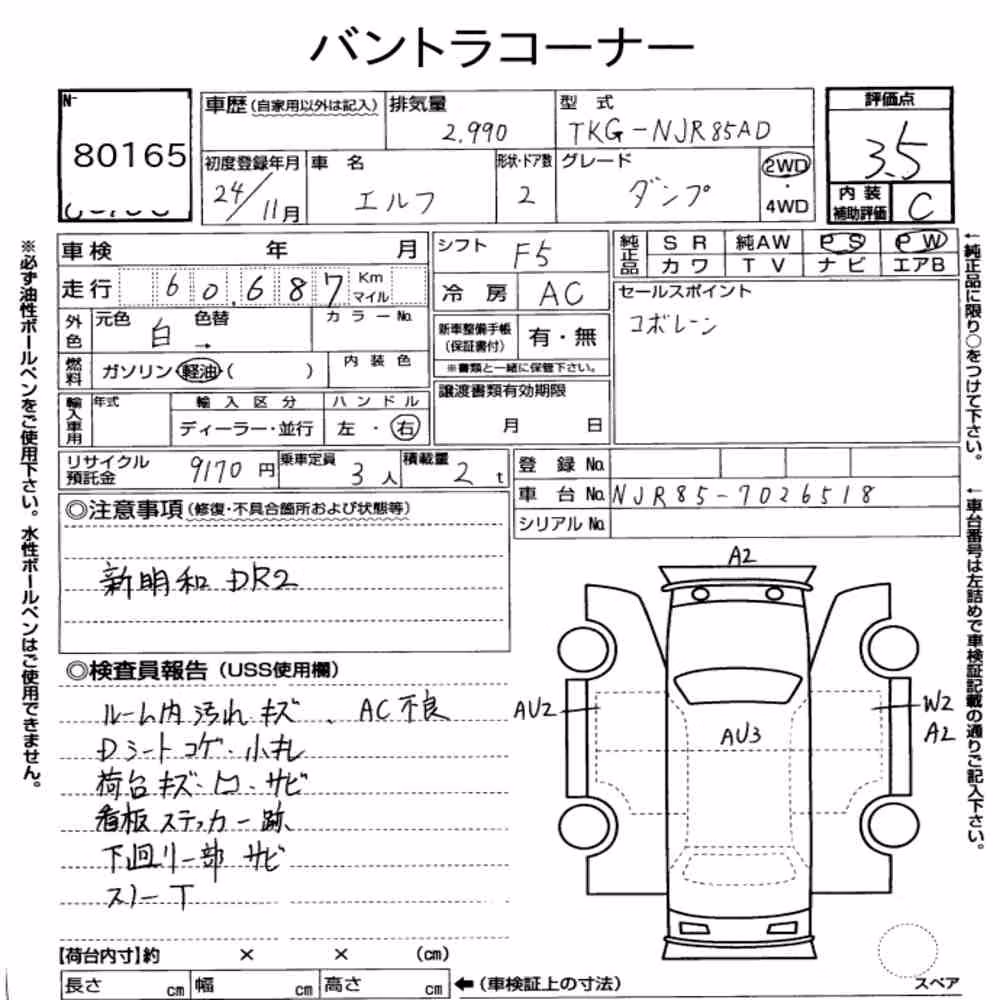 バントラコーナー
No
80165
車歴(自家用以外は記入)
排気量
2.990
型 式
TKG-NJR85AD
評価点
3.5
内装補助評価
C
初度登録年月
24/11月
車 名
エルフ
形状・ドア数
2
グレード
ダンプ
2WD
・
4WD
車検 年 月
走行 60.687 Km マイル
外色
元色 白
色替 →
カラーNo.
燃料
ガソリン・軽油・( )
内装色
輸入車用
年式
輸入区分
ディーラー・並行
ハンドル
左 ・ 右
シフト
F5
冷 房
AC
新車整備手帳(保証書付)
有・無
※書類と一緒に保管下さい。
譲渡書類有効期限
月 日
純正品
SR 純AW PS PW
カワ TV ナビ エアB
セールスポイント
コボレーン
リサイクル預託金
9170円
乗車定員
3人
積載量
2t
登 録 No.
車 台 No. NJR85-7026518
シリアルNo.
◎注意事項(修復・不具合箇所および状態等)
新明和 DR2
◎検査員報告(USS使用欄)
ルーム内 汚れ キズ 、AC不良
Dシートコゲ・小キレ
荷台キズ・凹・サビ
看板ステッカー跡
下廻り一部 サビ
スノーT
A2
AU2
AU3
W2
A2
スペア
【荷台内寸】約 × × (cm)
長さ cm 幅 cm 高さ cm
←(車検証上の寸法)
※必ず油性ボールペンをご使用下さい。水性ボールペンはご使用できません。
←純正品に限り○をつけて下さい。
←車台番号は左詰めで車検証記載の通りご記入下さい。